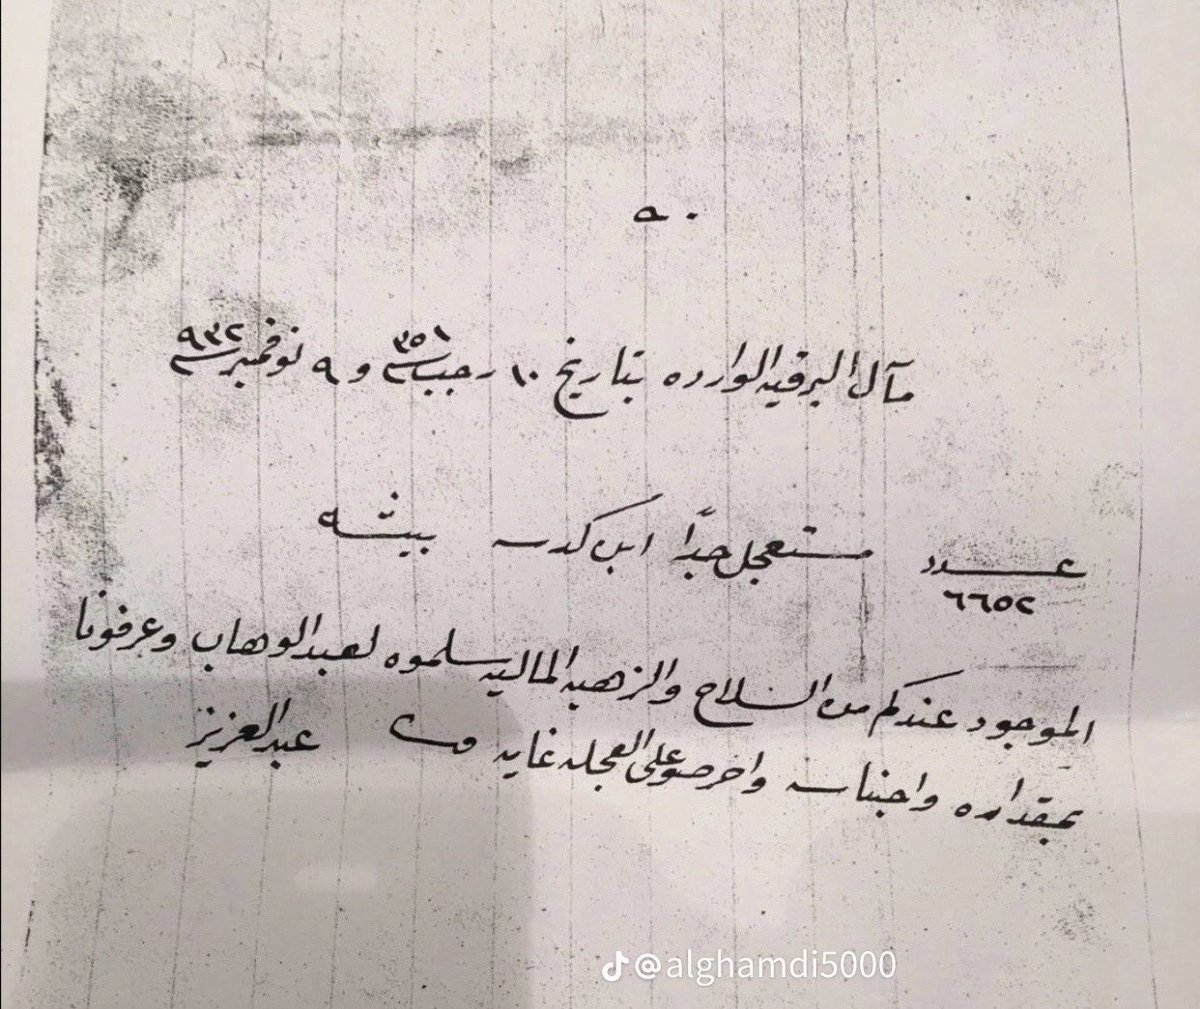 ٥٠
مآل البرقيه الوارده بتاريخ ١٠ رجب سنة ٣٥١ و ٩ نوفمبر سنة ٩٣٢
عدد ٦٦٥٢ مستعجل جداً ابن بيشه
الموجود عندكم من السلاح والزهبه الماليه سلموه لعبدالوهاب وعرفونا
بمقداره واجناسه واحرصو على العجله غايه عبدالعزيز
@alghamdi5000